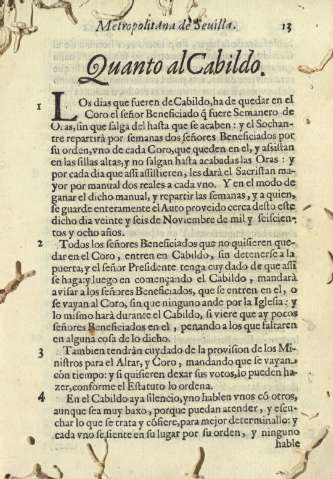 Metropolitana de Sevilla. 13
Quanto al Cabildo.
1 LOs dias que fueren de Cabildo, ha de quedar en el
Coro el señor Beneficiado q̃ fuere Semanero de
Oras, sin que salga del hasta que se acaben: y el Sochan-
tre repartirà por semanas dos señores Beneficiados por
su orden, vno de cada Coro, que queden en el, y asistan
en las sillas altas, y no salgan hasta acabadas las Oras: y
por cada dia que assi assistieren, les darà el Sacristan ma-
yor por manual dos reales a cada vno. Y en el modo de
ganar el dicho manual, y repartir las semanas, y a quien,
se guarde enteramente el Auto proveido cerca desto este
dicho dia veinte y seis de Noviembre de mil y seiscien-
tos y ocho años.
2 Todos los señores Beneficiados que no quisieren que-
dar en el Coro, entren en Cabildo, sin detenerse a la
puerta; y el señor Presidente tenga cuydado de que assi
se haga; y luego en començando el Cabildo, mandarà
avisar a los señores Beneficiados, que se entren en el, o
se vayan al Coro, sin que ninguno ande por la Iglesia: y
lo mismo harà durante el Cabildo, si viere que ay pocos
señores Beneficiados en el, penando a los que faltaren
en alguna cosa de lo dicho.
3 Tambien tendràn cuydado de la provision de los Mi-
nistros para el Altar, y Coro, mandando que se vayan
con tiempo: y si quisieren dexar sus votos, lo pueden ha-
zer, conforme el Estatuto lo ordena.
4 En el Cabildo aya silencio, y no hablen vnos cõ otros,
aunque sea muy baxo, porque puedan atender, y escu-
char lo que se trata y cõfiere, para mejor determinallo: y
cada vno se siente en su lugar por su orden, y ninguno
hable